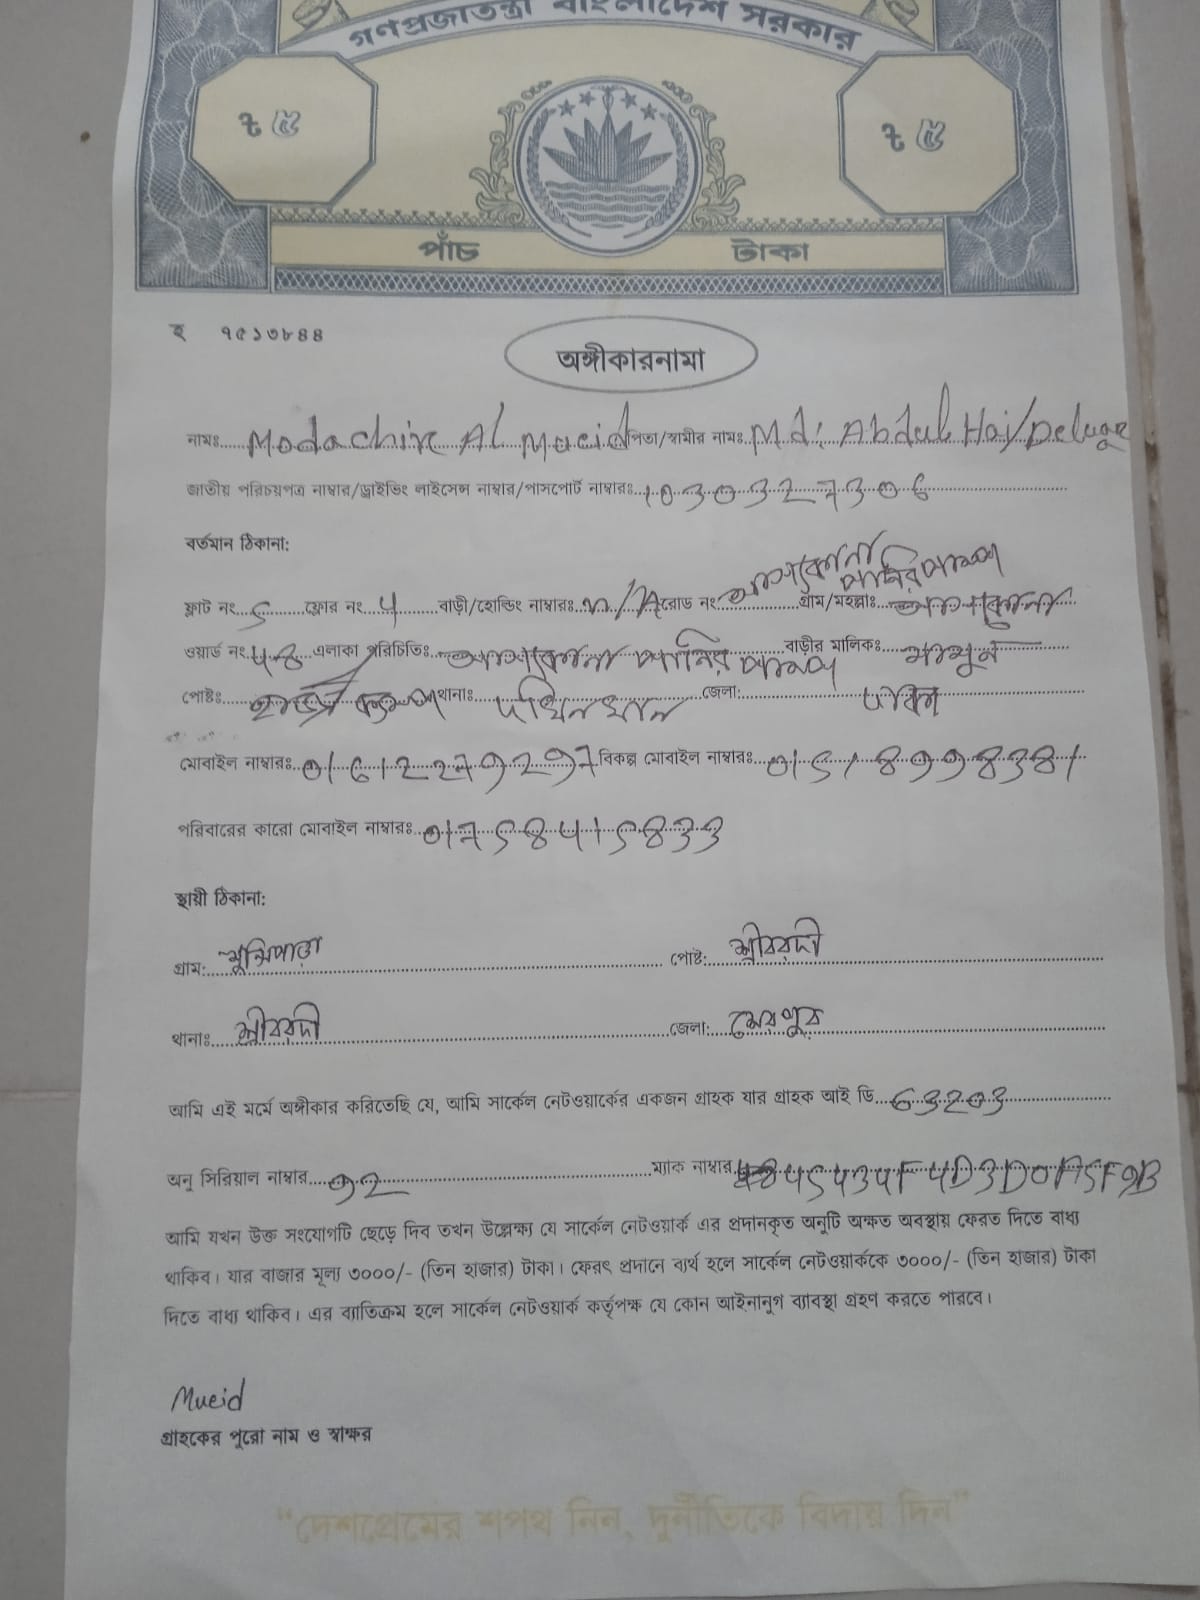 গণপ্রজাতন্ত্রী বাংলাদেশ সরকার
৳ ৫ ৳ ৫
পাঁচ টাকা
হ ৭৫১৩৮৪৪
অঙ্গীকারনামা
নামঃ Modachir Al Mueid পিতা/স্বামীর নামঃ Md: Abdul Hai/Deluar
জাতীয় পরিচয়পত্র নাম্বার/ড্রাইভিং লাইসেন্স নাম্বার/পাসপোর্ট নাম্বারঃ 1030327306
বর্তমান ঠিকানা:
ফ্লাট নং ফ্লোর নং 4 বাড়ী/হোল্ডিং নাম্বারঃ N/A রোড নং আশকোনা পানির পাম্প গ্রাম/মহল্লাঃ আশকোনা
ওয়ার্ড নং এলাকা পরিচিতিঃ আশকোনা পানির পাম্প বাড়ীর মালিকঃ মামুন
পোষ্টঃ থানাঃ দক্ষিনখান জেলা: ঢাকা
মোবাইল নাম্বারঃ বিকল্প মোবাইল নাম্বারঃ
পরিবারের কারো মোবাইল নাম্বারঃ
স্থায়ী ঠিকানা:
গ্রাম: মুন্সিপাড়া পোষ্ট: শ্রীবরদী
থানাঃ শ্রীবরদী জেলা: শেরপুর
আমি এই মর্মে অঙ্গীকার করিতেছি যে, আমি সার্কেল নেটওয়ার্কের একজন গ্রাহক যার গ্রাহক আই ডি 63203
অনু সিরিয়াল নাম্বার 92 ম্যাক নাম্বার
আমি যখন উক্ত সংযোগটি ছেড়ে দিব তখন উল্লেক্ষ্য যে সার্কেল নেটওয়ার্ক এর প্রদানকৃত অনুটি অক্ষত অবস্থায় ফেরত দিতে বাধ্য
থাকিব। যার বাজার মূল্য ৩০০০/- (তিন হাজার) টাকা। ফেরৎ প্রদানে ব্যর্থ হলে সার্কেল নেটওয়ার্ককে ৩০০০/- (তিন হাজার) টাকা
দিতে বাধ্য থাকিব। এর ব্যাতিক্রম হলে সার্কেল নেটওয়ার্ক কর্তৃপক্ষ যে কোন আইনানুগ ব্যাবস্থা গ্রহণ করতে পারবে।
Mueid
গ্রাহকের পুরো নাম ও স্বাক্ষর
"দেশপ্রেমের শপথ নিন, দুর্নীতিকে বিদায় দিন"